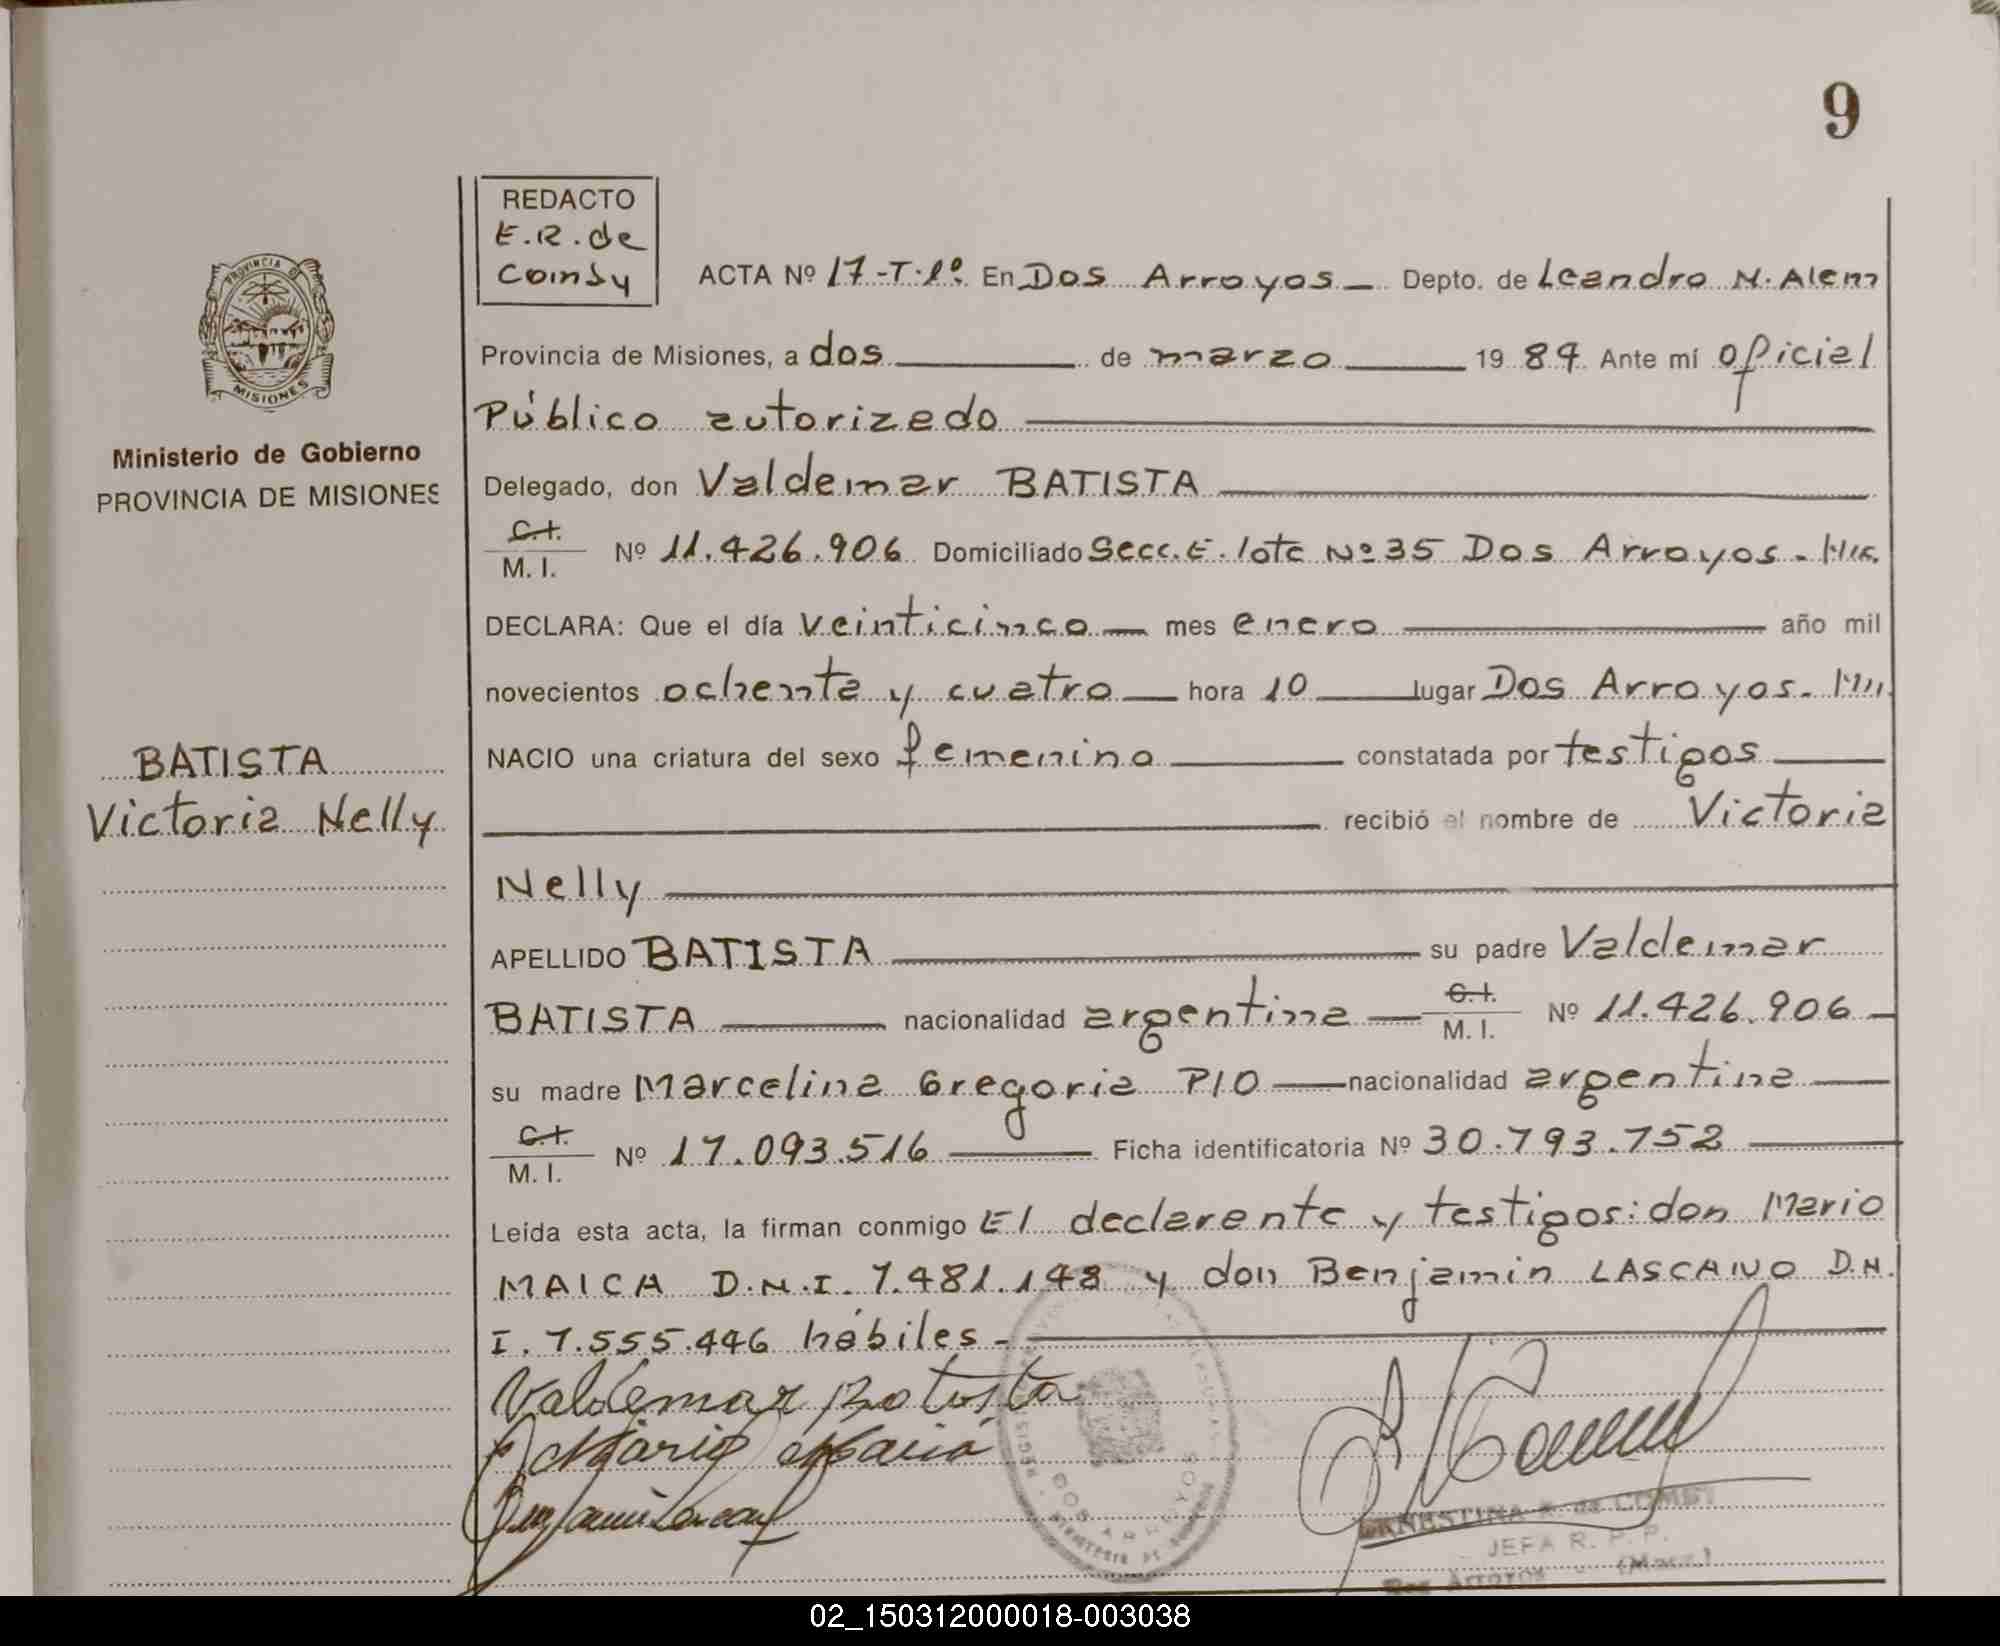 9
REDACTO
E.R. de
Comsy
ACTA Nº 17-T.1º. En Dos Arroyos Depto. de Leandro N. Alem
Provincia de Misiones, a dos de marzo 1984 Ante mí oficial
Público autorizado
Delegado, don Valdemar BATISTA
C.I.
M. I. Nº 11.426.906 Domiciliado Secc. E. lote Nº 35 Dos Arroyos - Mis.
DECLARA: Que el día veinticinco mes enero año mil
novecientos ochenta y cuatro hora 10 lugar Dos Arroyos.
NACIO una criatura del sexo femenino constatada por testigos
recibió el nombre de Victoria
Nelly
APELLIDO BATISTA su padre Valdemar
BATISTA nacionalidad argentina C.I.
M. I. Nº 11.426.906
su madre Marcelina Gregoria PIO nacionalidad argentina
C.I.
M. I. Nº 17.093.516 Ficha identificatoria Nº 30.793.752
Leída esta acta, la firman conmigo El declarante y testigos: don Mario
MAICA D.N.I. 7.481.148 y don Benjamin LASCANO D.N.
I. 7.555.446 hábiles -
Valdemar Batista
Mario
PROVINCIA DE
MISIONES
Ministerio de Gobierno
PROVINCIA DE MISIONES
BATISTA
Victoria Nelly
DOS ARROYOS
ERNESTINA R. de
JEFA R. P. P.
Dos Arroyos
02_150312000018-003038